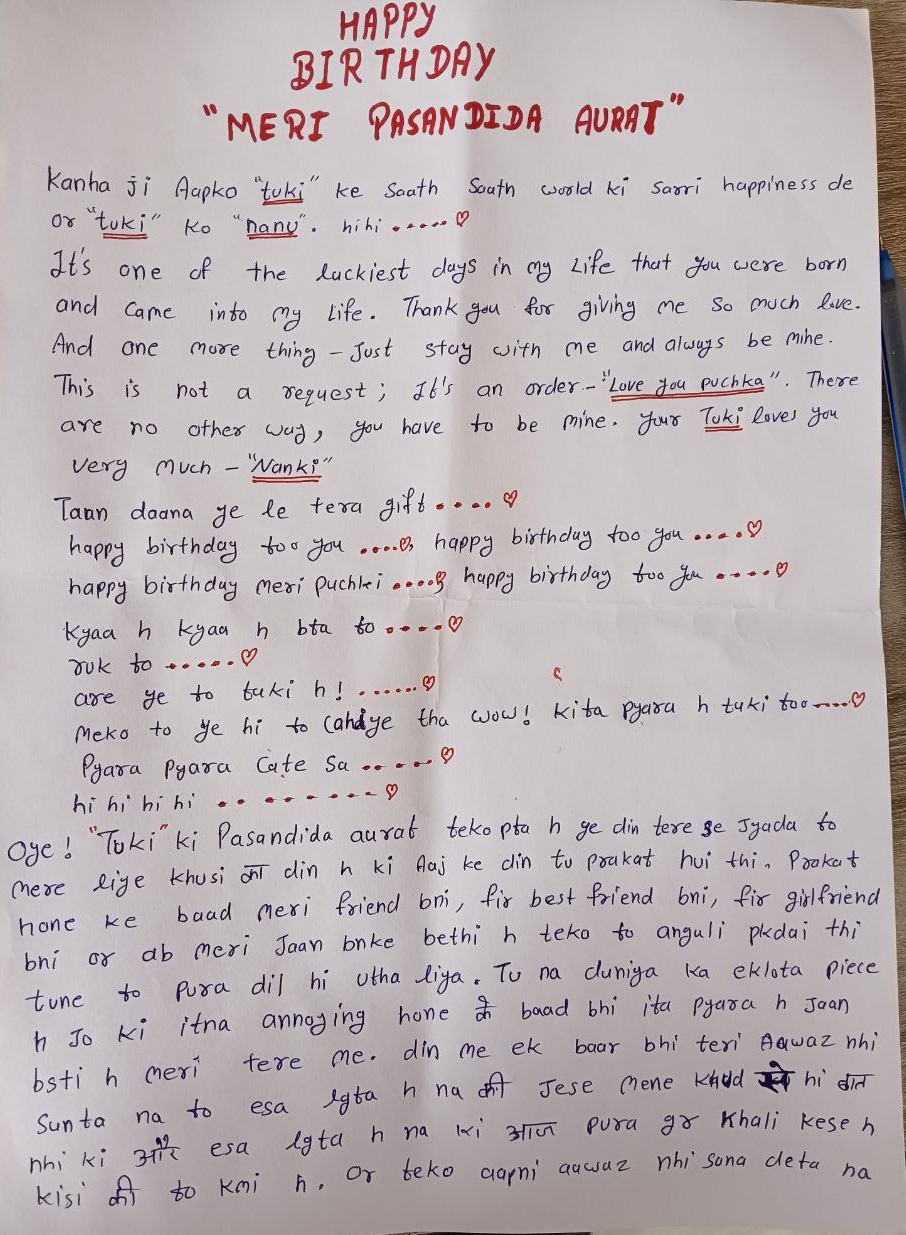 HAPPY
BIRTHDAY
"MERI PASANDIDA AURAT"
Kanha ji Aapko "tuki" ke Saath Saath world ki sarri happiness de
or "tuki" ko "nanu". hihi ..... ♡
It's one of the luckiest days in my Life that you were born
and came into my Life. Thank you for giving me so much love.
And one more thing – Just stay with me and always be mine.
This is not a request; It's an order – "Love you puchka". There
are no other way, you have to be mine. Your Tuki loves you
very much – "Nanki"
Taan daana ye le tera gift ..... ♡
happy birthday too you ....♡, happy birthday too you .....♡
happy birthday meri Puchki ....♡ happy birthday too you .....♡
Kyaa h kyaa h bta to .....♡
ruk to ......♡
are ye to tuki h! .......♡
Meko to ye hi to Cahiye tha wow! kita pyara h tuki too ....♡
Pyara pyara Cute Sa ..... ♡
hi hi hi hi ......... ♡
Oye! "Tuki" ki Pasandida aurat teko pta h ye din tere se Jyada to
mere liye khusi का din h ki Aaj ke din tu prakat hui thi. Prakat
hone ke baad meri friend bni, fir best friend bni, fir girlfriend
bni or ab meri Jaan bnke bethi h teko to anguli pkdai thi
tune to pura dil hi utha liya. Tu na duniya ka eklota piece
h Jo ki itna annoying hone के baad bhi ita pyara h Jaan
bsti h meri tere me. din me ek baar bhi teri Aawaz nhi
sunta na to esa lgta h na की Jese mene khud से hi बात
nhi ki और esa lgta h na ki आज pura gr Khali kese h
kisi की to kmi h. Or teko aapni aawaz nhi suna deta na